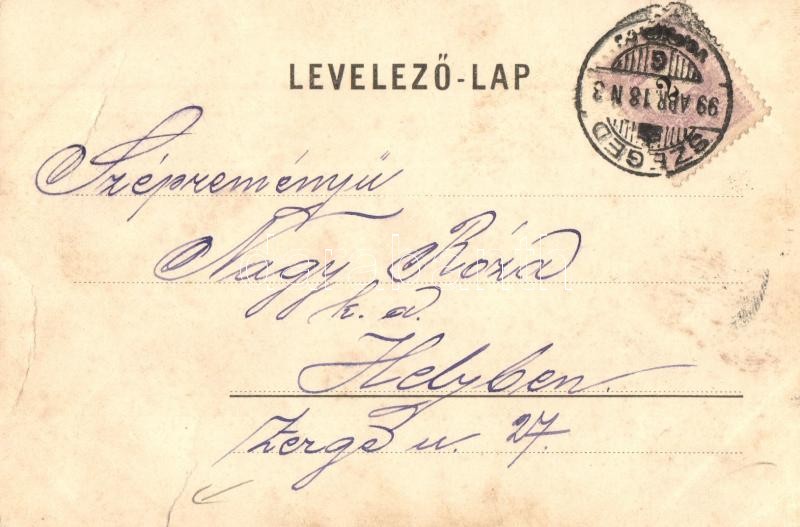 LEVELEZŐ-LAP
SZEGED
99 APR. 18 N 3
Szépreményű
Nagy Róza
k. a.
Helyben.
Zerge u. 27.